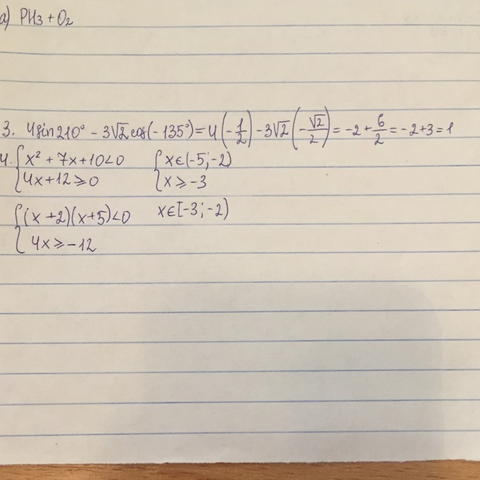 а) PH3 + O2
3. 4sin210° - 3√2cos(-135°) = 4(-1/2) - 3√2(-√2/2) = -2 + 6/2 = -2+3 = 1
4. { x² + 7x + 10 < 0 { x ∈ (-5; -2)
4x + 12 ≥ 0 x ≥ -3
{ (x + 2)(x + 5) < 0 x ∈ [-3; -2)
4x ≥ -12